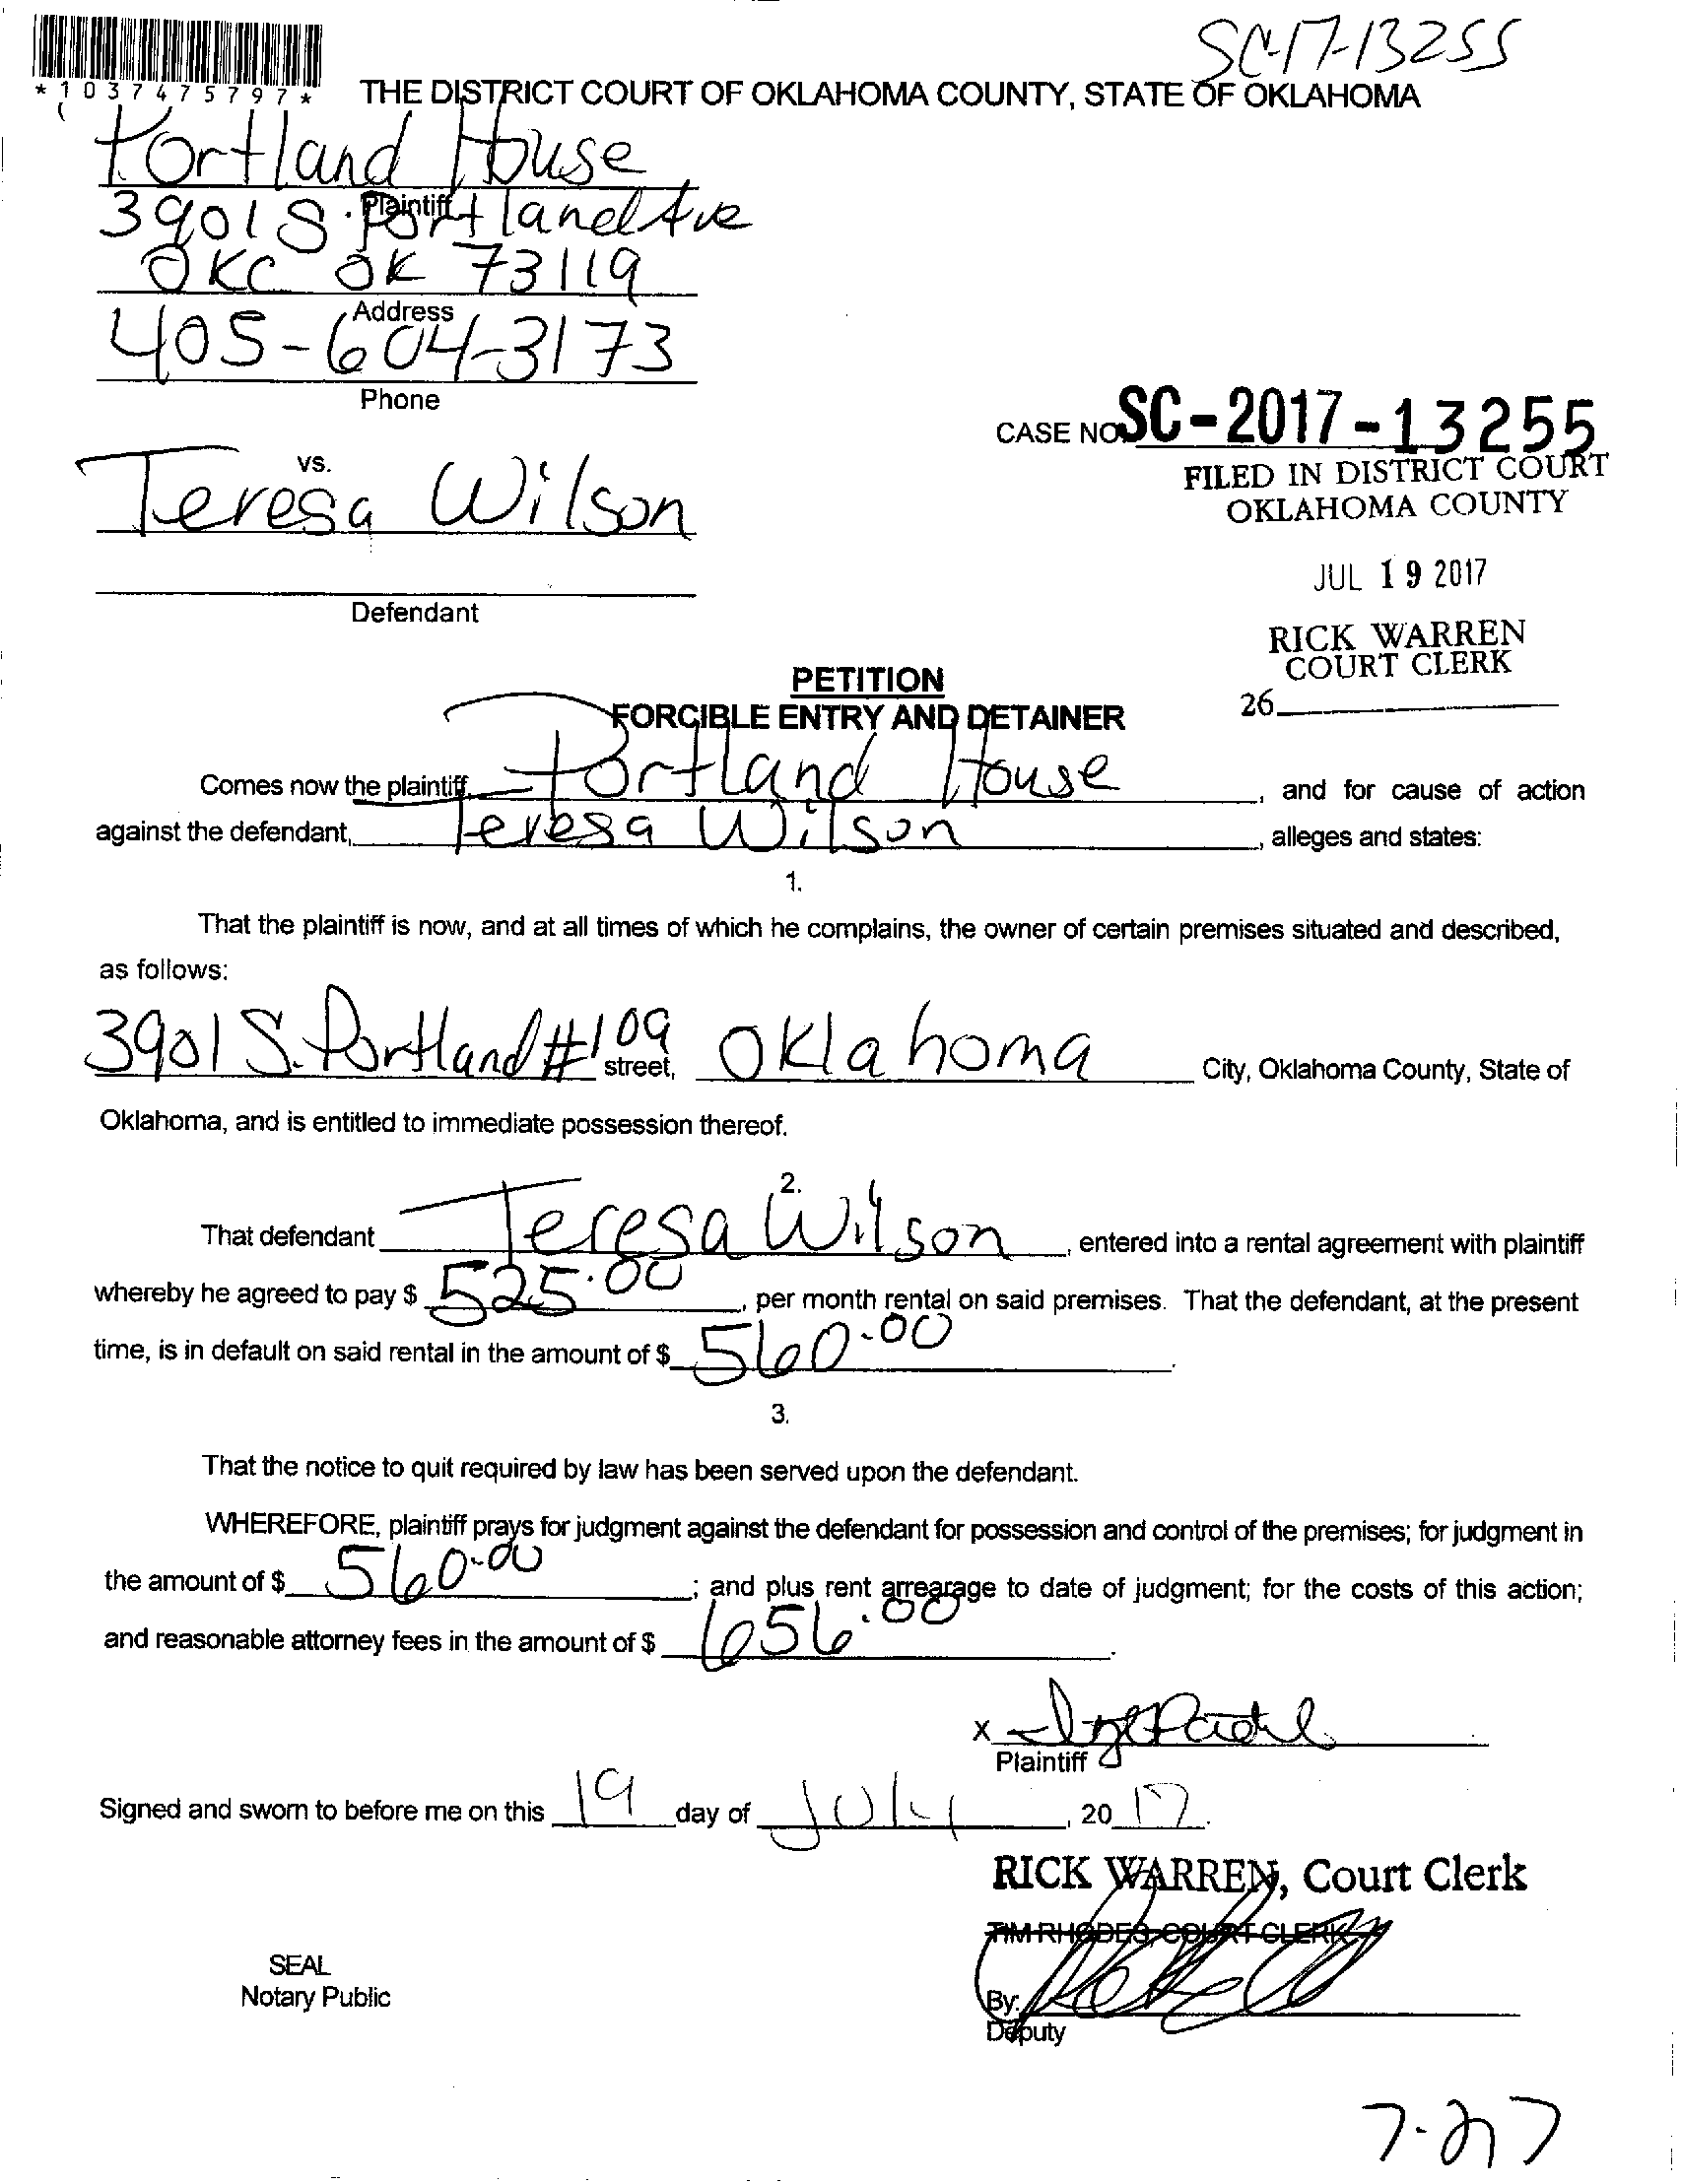 SC-17-13255
*1037475797*
THE DISTRICT COURT OF OKLAHOMA COUNTY, STATE OF OKLAHOMA
Portland House
Plaintiff
3901 S. Portland Ave
OKC OK 73119
Address
405-604-3173
Phone
CASE NO SC-2017-13255
vs.
Teresa Wilson
FILED IN DISTRICT COURT
OKLAHOMA COUNTY
JUL 19 2017
Defendant
RICK WARREN
COURT CLERK
26
PETITION
FORCIBLE ENTRY AND DETAINER
Comes now the plaintiff Portland House, and for cause of action
against the defendant, Teresa Wilson, alleges and states:
1.
That the plaintiff is now, and at all times of which he complains, the owner of certain premises situated and described,
as follows:
3901 S. Portland #109 street, Oklahoma City, Oklahoma County, State of
Oklahoma, and is entitled to immediate possession thereof.
2.
That defendant Teresa Wilson, entered into a rental agreement with plaintiff
whereby he agreed to pay $ 525.00, per month rental on said premises. That the defendant, at the present
time, is in default on said rental in the amount of $ 560.00.
3.
That the notice to quit required by law has been served upon the defendant.
WHEREFORE, plaintiff prays for judgment against the defendant for possession and control of the premises; for judgment in
the amount of $ 560.00; and plus rent arrearage to date of judgment; for the costs of this action;
and reasonable attorney fees in the amount of $ 656.00.
X
Plaintiff
Signed and sworn to before me on this 19 day of July, 2017.
RICK WARREN, Court Clerk
TIM RHODES, COURT CLERK
SEAL
Notary Public
By:
Deputy